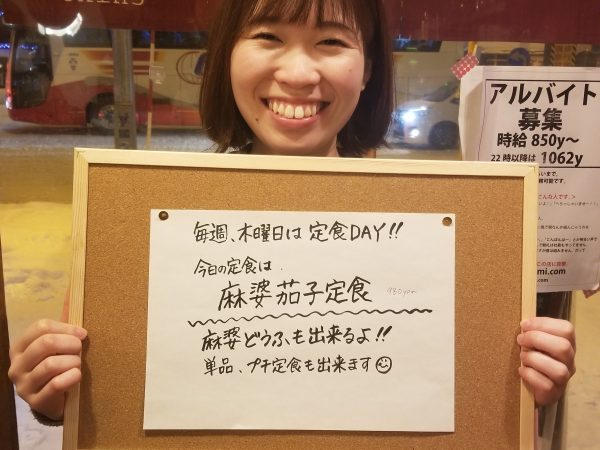 毎週、木曜日は定食DAY!!
今日の定食は、
麻婆茄子定食 930yen
麻婆どうふも出来るよ!!
単品、プチ定食も出来ます☺
アルバイト
募集
時給 850y~
22時以降は 1062y